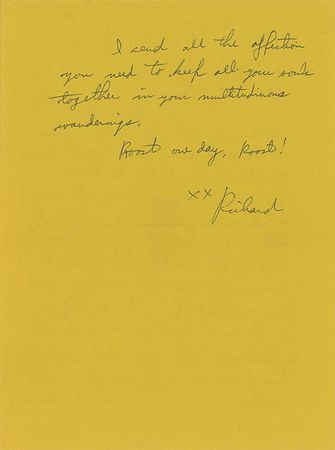 I send all the affection
you need to keep all your souls
together in your multitudinous
wanderings.
Roost one day, Roost!
xx Richard